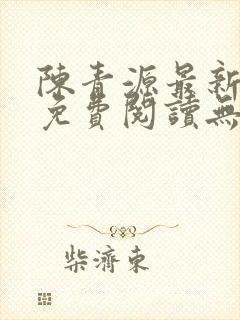 陳青源最新
免費閱讀無
柴濟東